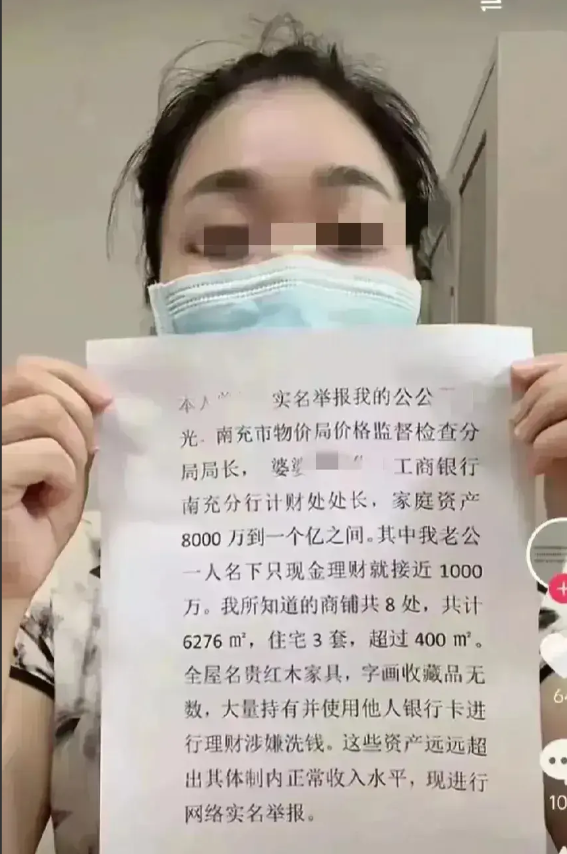 本人
实名举报我的公公
光 南充市物价局价格监督检查分
局局长， 婆婆 工商银行
南充分行计财处处长，家庭资产
8000 万到一个亿之间。其中我老公
一人名下只现金理财就接近 1000
万。我所知道的商铺共 8 处，共计
6276 ㎡，住宅 3 套，超过 400 ㎡。
全屋名贵红木家具，字画收藏品无
数，大量持有并使用他人银行卡进
行理财涉嫌洗钱。这些资产远远超
出其体制内正常收入水平，现进行
网络实名举报。